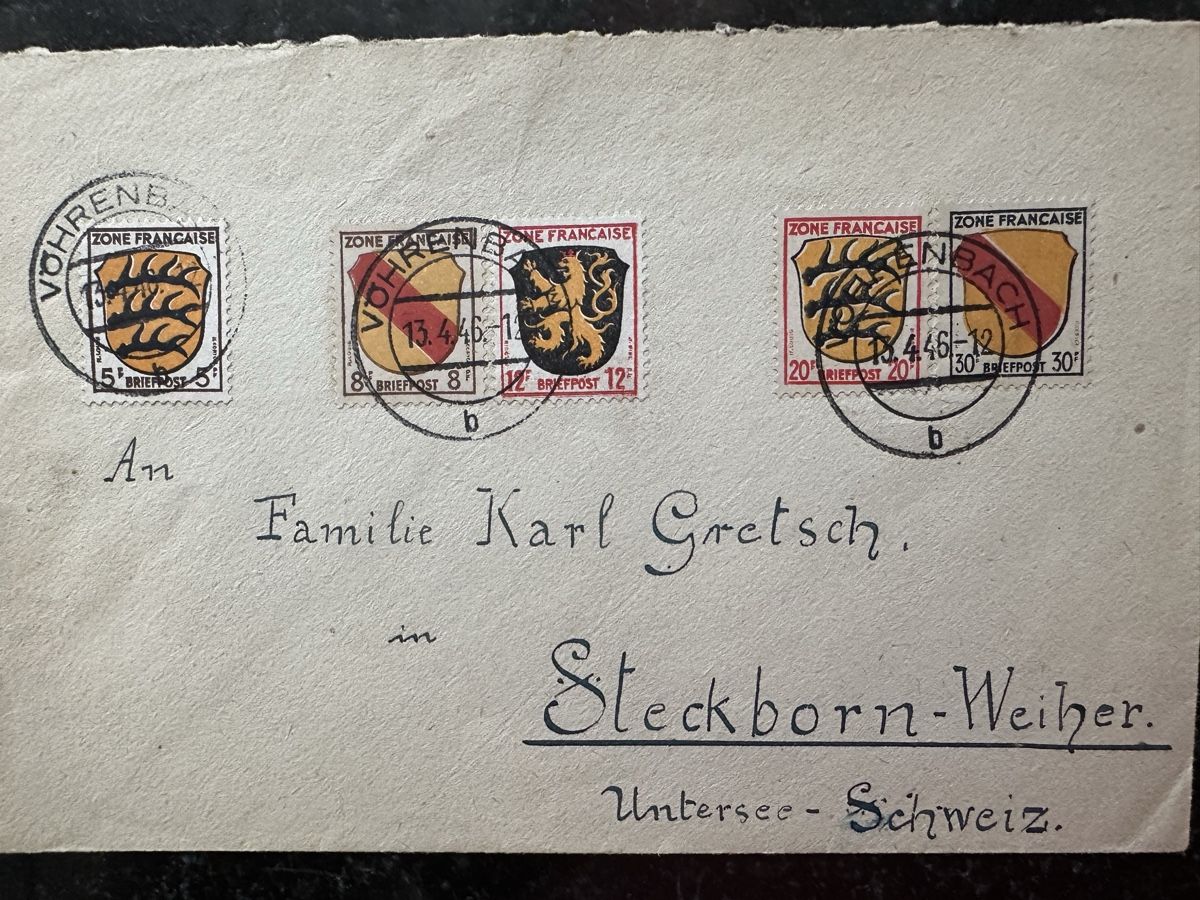 VÖHRENBA
ZONE FRANCAISE
5F BRIEFPOST 5F
VÖHRENBA
13.4.46-12
b
ZONE FRANCAISE
8F BRIEFPOST 8F
ZONE FRANCAISE
12F BRIEFPOST 12F
ZONE FRANCAISE
20F BRIEFPOST 20F
ZONE FRANCAISE
30F BRIEFPOST 30F
RENBACH
13.4.46-12
b
An
Familie Karl Gretsch.
in
Steckborn-Weiher.
Untersee- Schweiz.